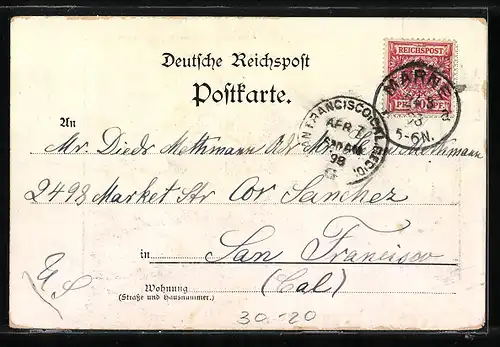 Deutsche Reichspost
Postkarte.
REICHSPOST
MARNE
98
5-6N.
PF. 10 PF.
SAN FRANCISCO, CAL. REC'D.
APR 7
98
An
Mr. Dieds Methmann Adr Mr. Methmann
2498 Market Str Cor Sanchez
in San Francisco
(Cal)
US
Wohnung
(Straße und Hausnummer.)
30.-20